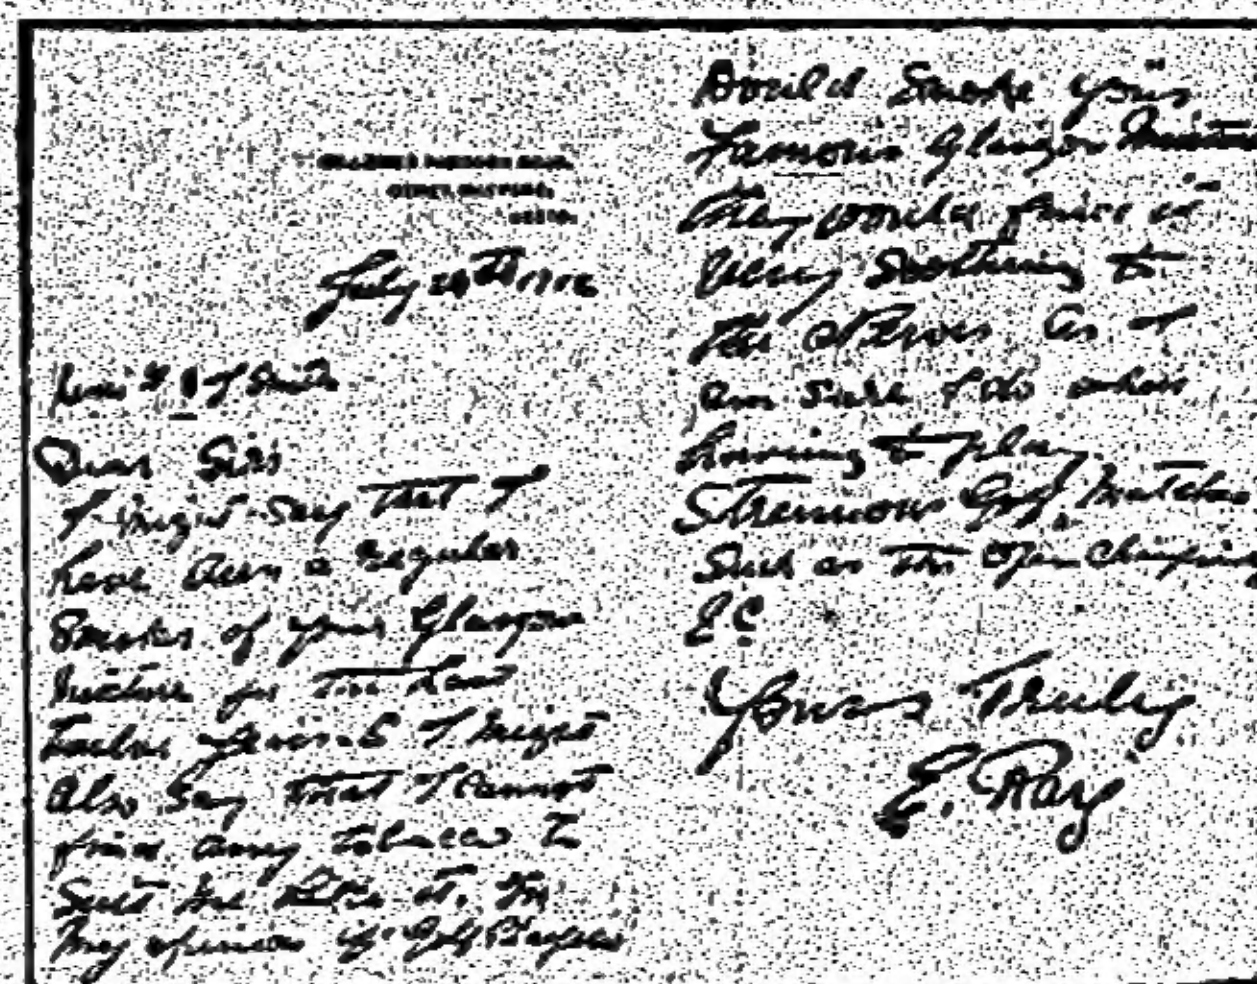 July 24th 1912
Dear Sirs
I might say that I
have been a regular
Smoker of your Glasgow
Mixture for the last
Twelve years & I might
also say that I cannot
find any tobacco to
suit me like it. In
my opinion if Golf Players
Would Smoke your
Famous Glasgow Mixture
they would find it
very Soothing to
the Nerves as I
am sure I do when
having to play
Strenuous Golf Matches
Such as the Open Championship
&c
Yours Truly
E. Ray